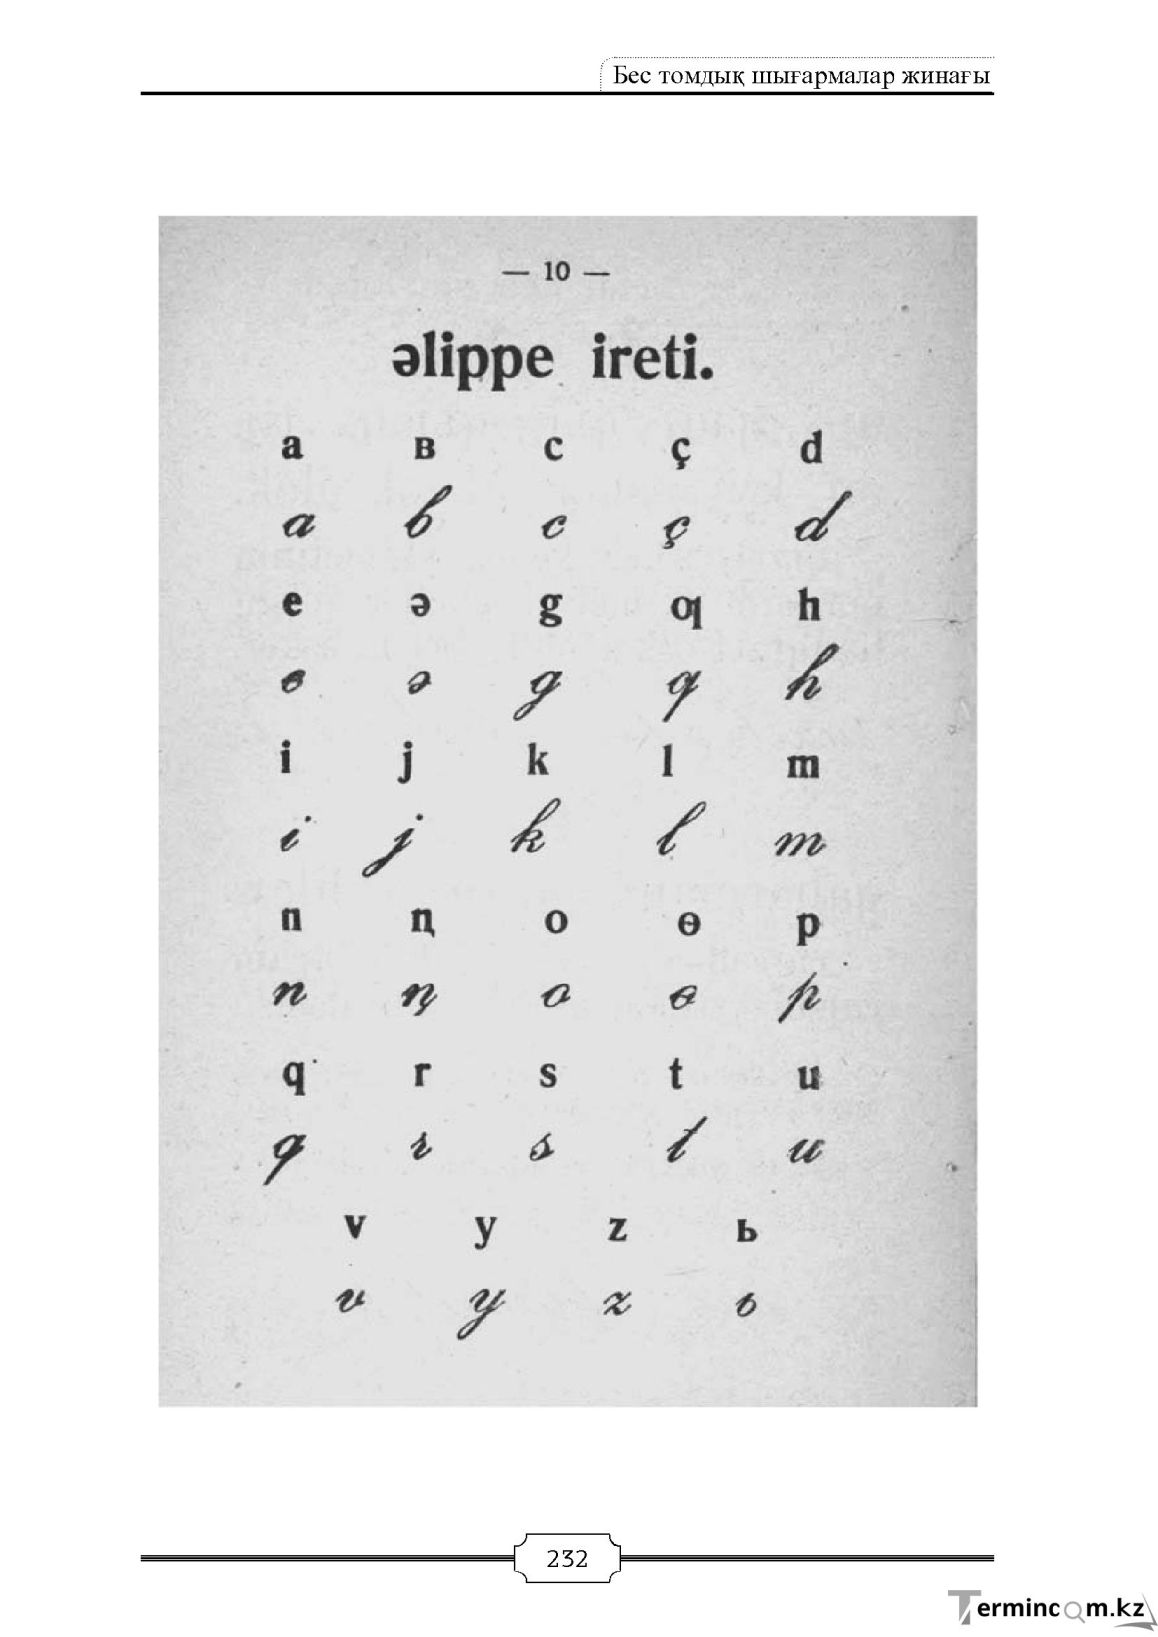 Бес томдық шығармалар жинағы
— 10 —
әlippe ireti.
a ʙ c ç d
a b c ç d
e ə g ƣ h
e ə g ƣ h
i j k l m
i j k l m
n ꞑ o ɵ p
n ꞑ o ɵ p
q r s t u
q r s t u
v y z ь
v y z ь
232
Termincom.kz